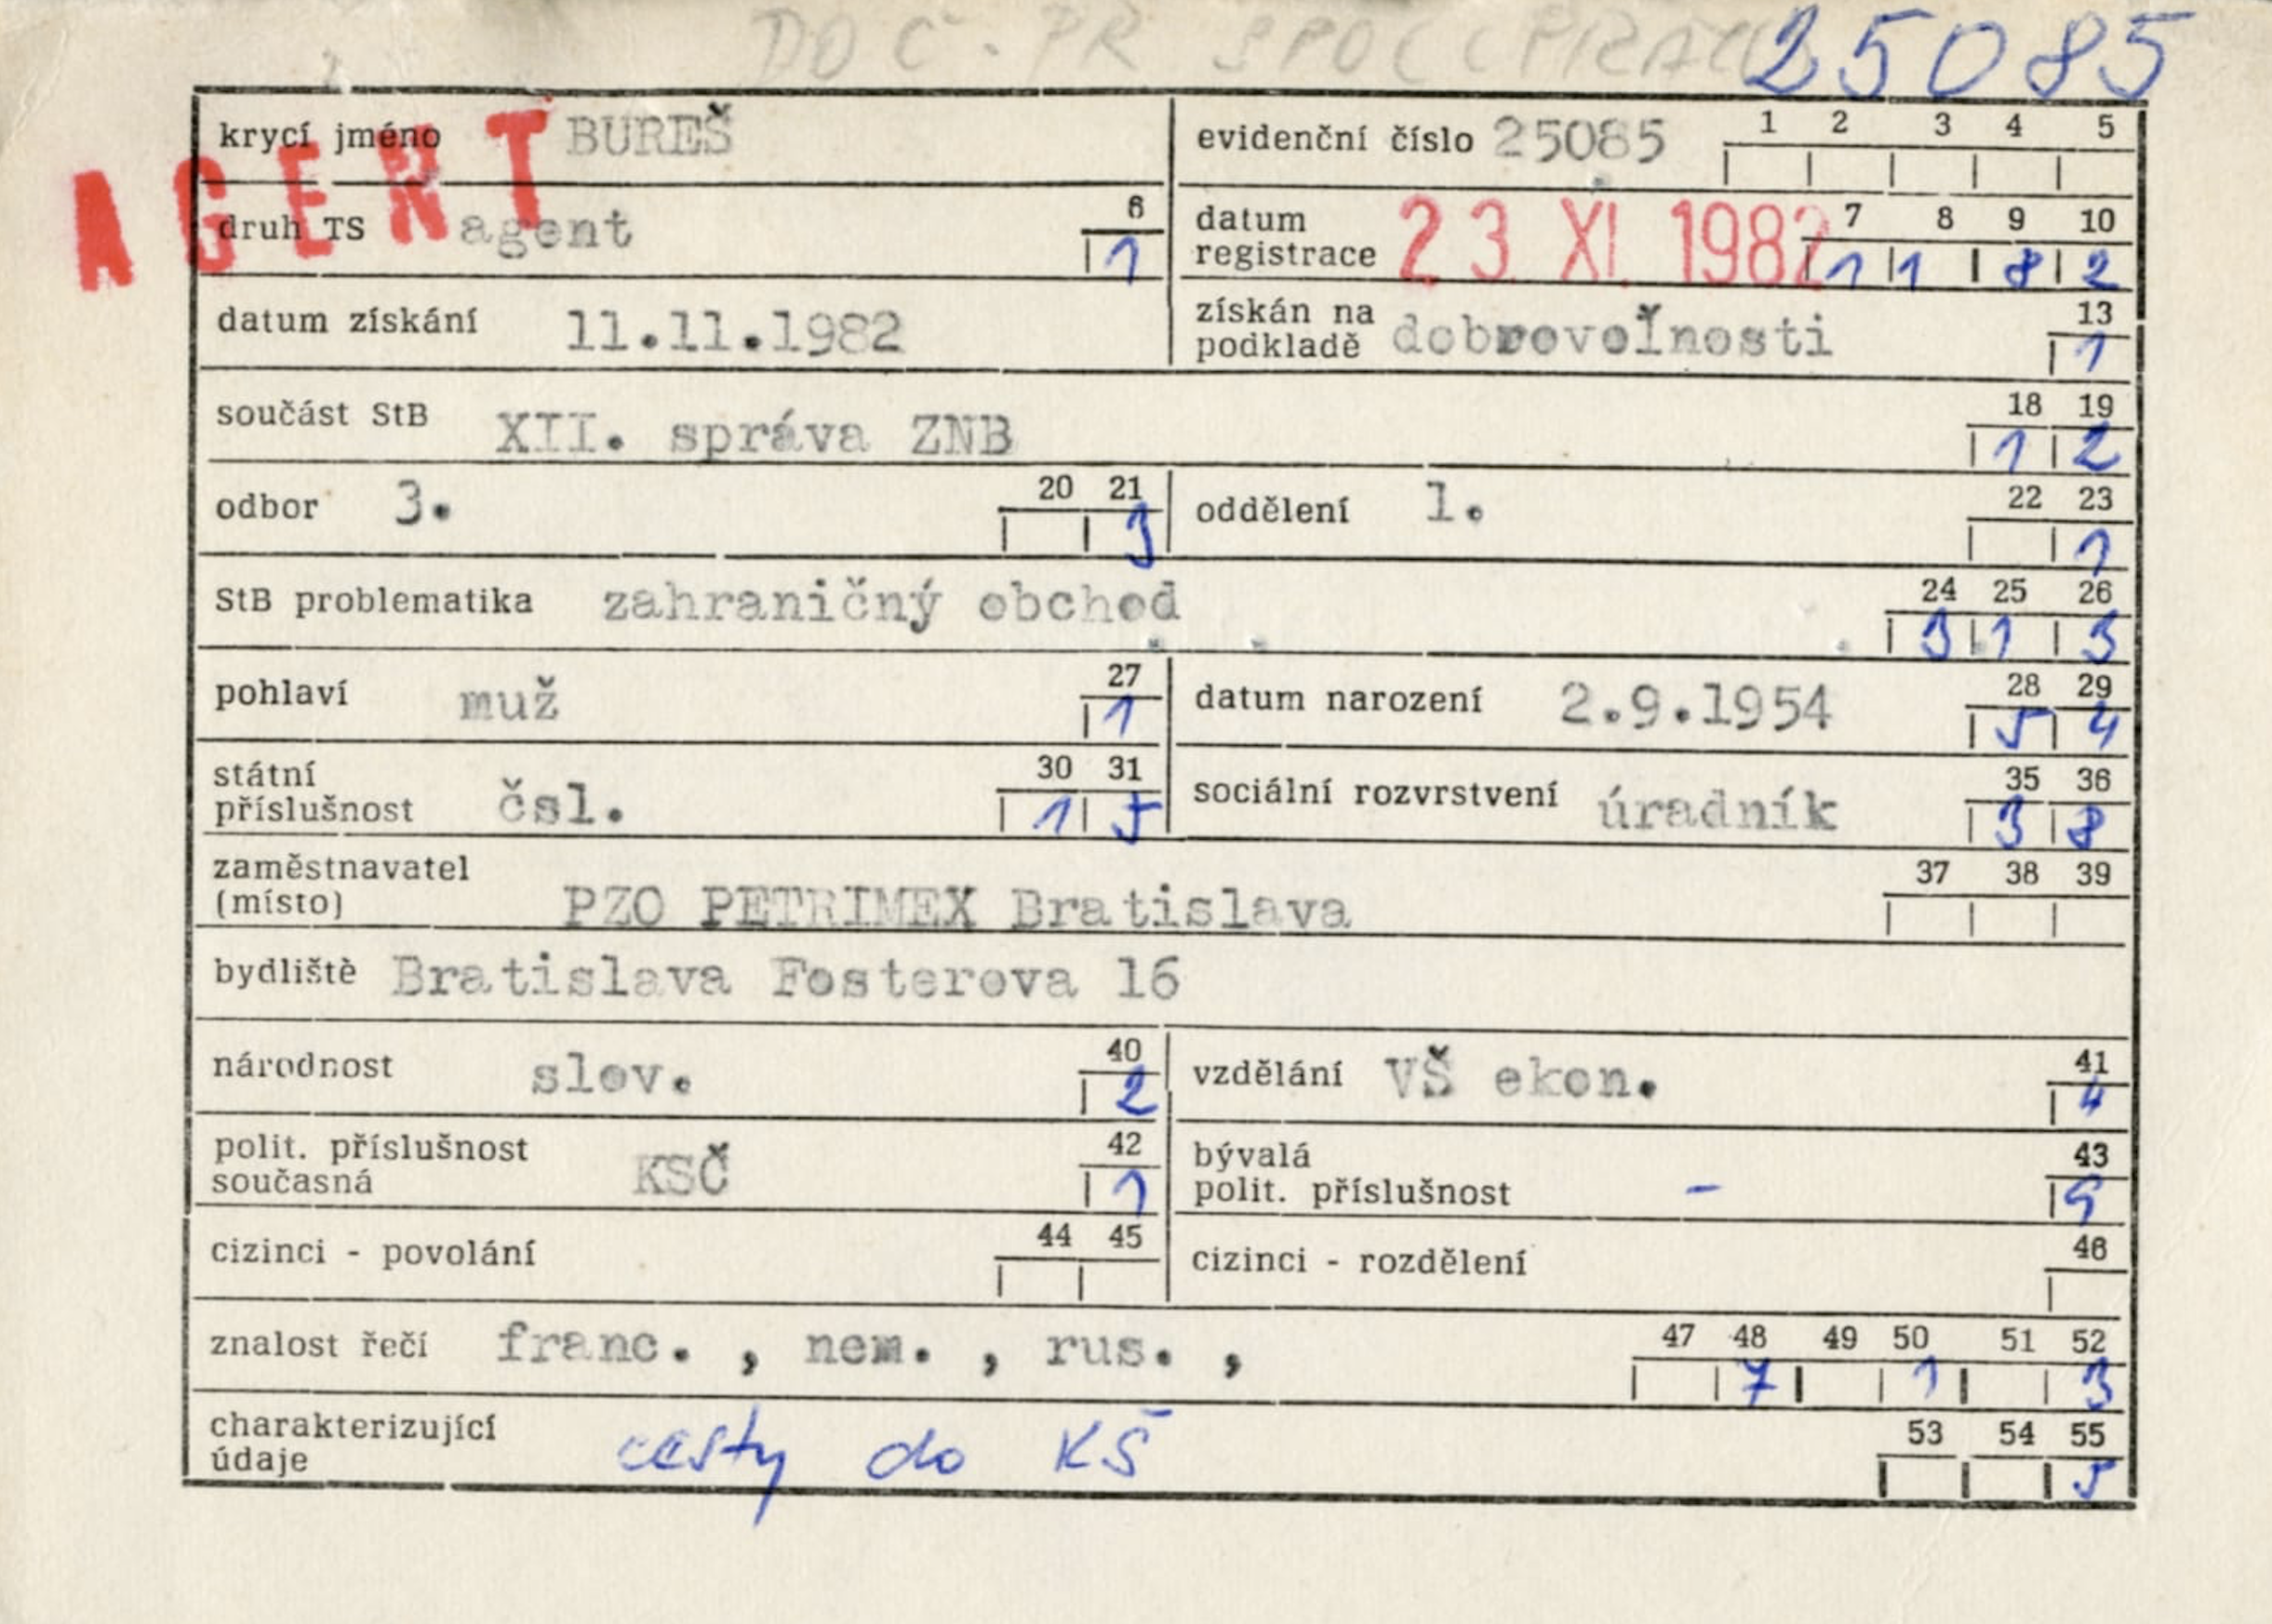 DOC. PŘ SPOLUPRÁCI
25085
AGENT
krycí jméno BUREŠ
evidenční číslo 25085 1 2 3 4 5
druh TS agent 6
1
datum
registrace 23 XI. 1982 7 8 9 10
1 1 8 2
datum získání 11.11.1982
získán na
podkladě dobrovoľnosti 13
1
součást StB XII. správa ZNB 18 19
1 2
odbor 3. 20 21
3
oddělení 1. 22 23
1
StB problematika zahraničný obchod 24 25 26
3 1 3
pohlaví muž 27
1
datum narození 2.9.1954 28 29
5 4
státní
příslušnost čsl. 30 31
1 5
sociální rozvrstvení úradník 35 36
3 8
zaměstnavatel
(místo) PZO PETRIMEX Bratislava 37 38 39
bydliště Bratislava Fosterova 16
národnost slov. 40
2
vzdělání VŠ ekon. 41
4
polit. příslušnost
současná KSČ 42
1
bývalá
polit. příslušnost - 43
9
cizinci - povolání 44 45
cizinci - rozdělení 46
znalost řečí franc. , nem. , rus. , 47 48 49 50 51 52
7 1 3
charakterizující
údaje cesty do KŠ 53 54 55
5